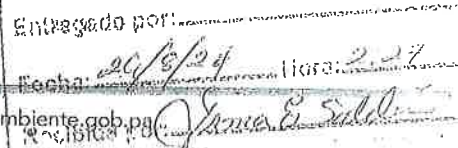 Entregado por:
Fecha: 26/8/24 Hora: 2:27
mbiente.gob.pa
Recibido Por: